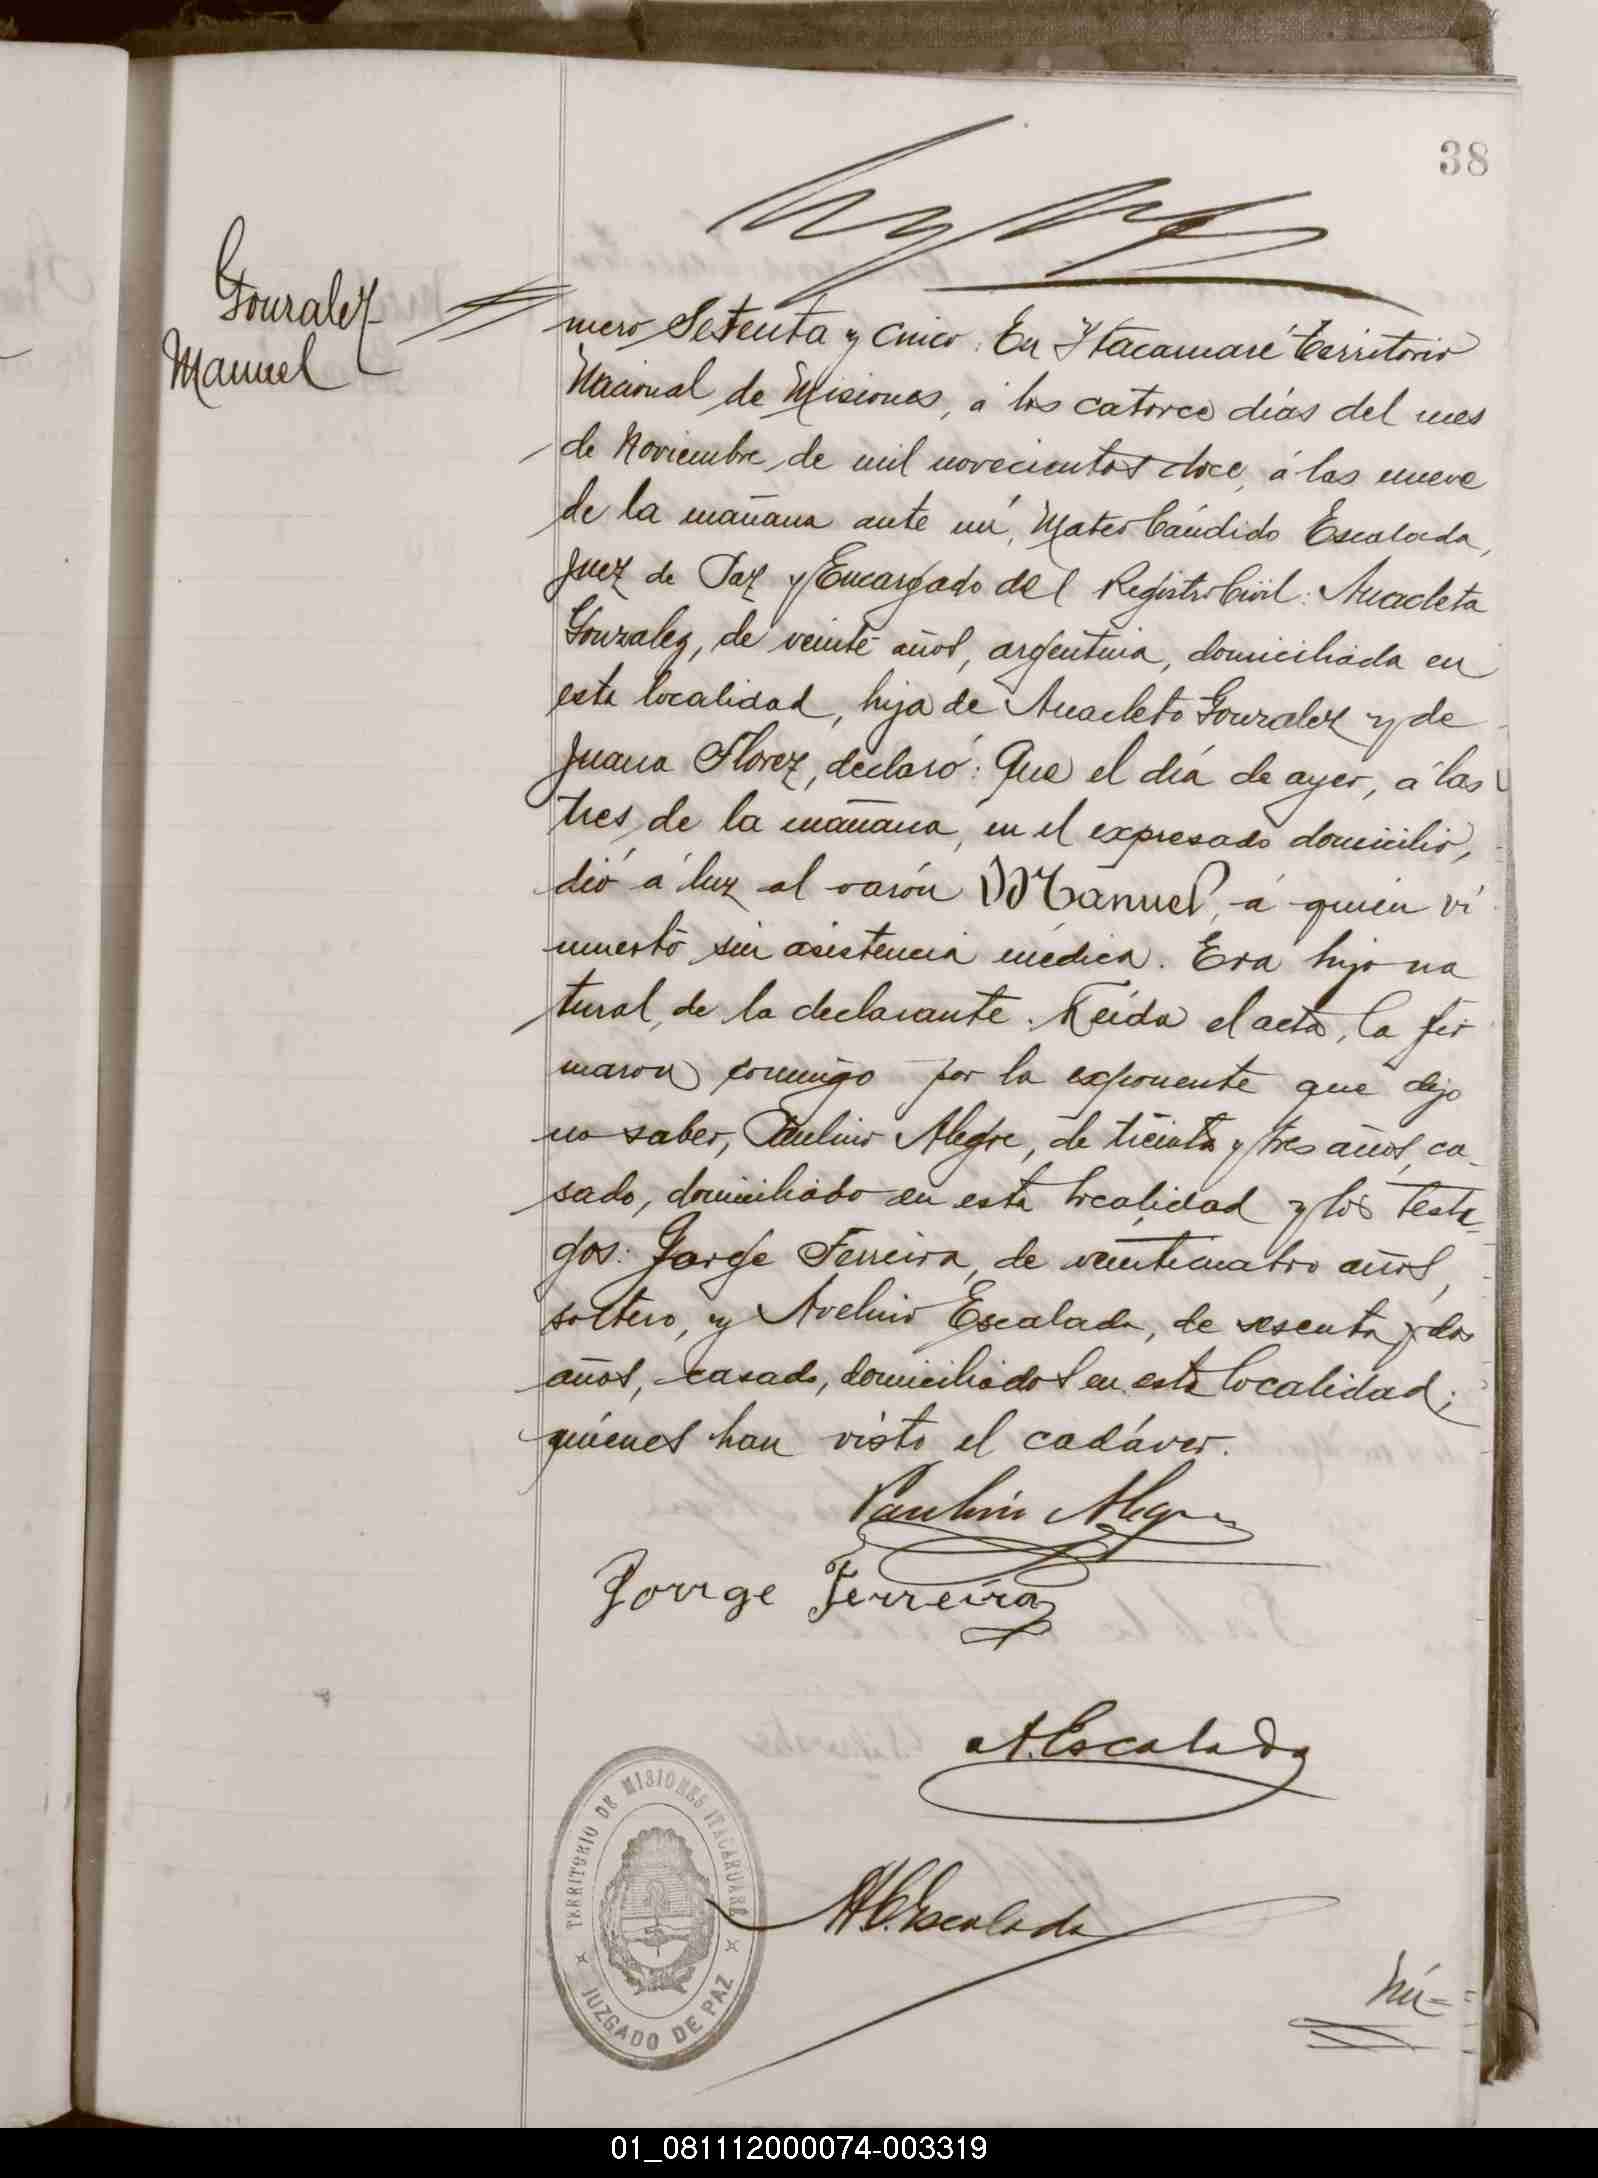 38
Gonzalez
Manuel
mero Setenta y cinco: En Itacaruaré territorio
Nacional de Misiones, á los catorce días del mes
de Noviembre de mil novecientos doce, á las nueve
de la mañana ante mí, Mateo Cándido Escalada,
Juez de Paz y Encargado del Registro Civil: Anacleta
Gonzalez, de veinte años, argentina, domiciliada en
esta localidad, hija de Anacleto Gonzalez y de
Juana Florez, declaró: Que el día de ayer, á las
tres de la mañana, en el expresado domicilio,
dió á luz al varón Manuel, á quien vi
muerto sin asistencia médica. Era hijo na
tural, de la declarante. Leída el acta, la fir
maron conmigo por la exponente que dijo
no saber, Paulino Alegre, de treinta y tres años, ca-
sado, domiciliado en esta localidad y los testi-
gos: Jorge Ferreira, de veinticuatro años,
soltero, y Avelino Escalada, de sesenta y dos
años, casado, domiciliados en esta localidad;
quienes han visto el cadáver.
Paulino Alegre
Jorrge Ferreira
A. Escalada
M.C. Escalada
TERRITORIO DE MISIONES ITACARUARÉ
JUZGADO DE PAZ
Nú=
01_081112000074-003319